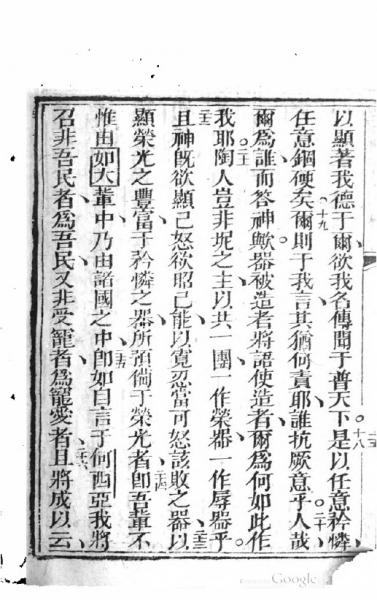 以顯著我德于爾欲我名傳聞于普天下。十八是以任意矜憐
任意鋼硬矣。十九爾則于我言其猶何責耶誰抗厥意乎。二十人哉
爾爲誰而答神歟。器被造者將語使造者爾爲何如此作
我耶。二十一陶人豈非坭之主以共一團一作榮器一作辱器乎。
二十二且神旣欲顯己怒欲昭己能以寬忍當可怒該敗之器。二十三以
顯榮光之豐富于矜憐之器所預備于榮光者。二十四卽吾輩不
惟由如大輩中乃由諸國之中。二十五卽如自言于何西亞我將
召非吾民者爲吾民又非受寵者爲寵愛者。二十六且將成以云
Google